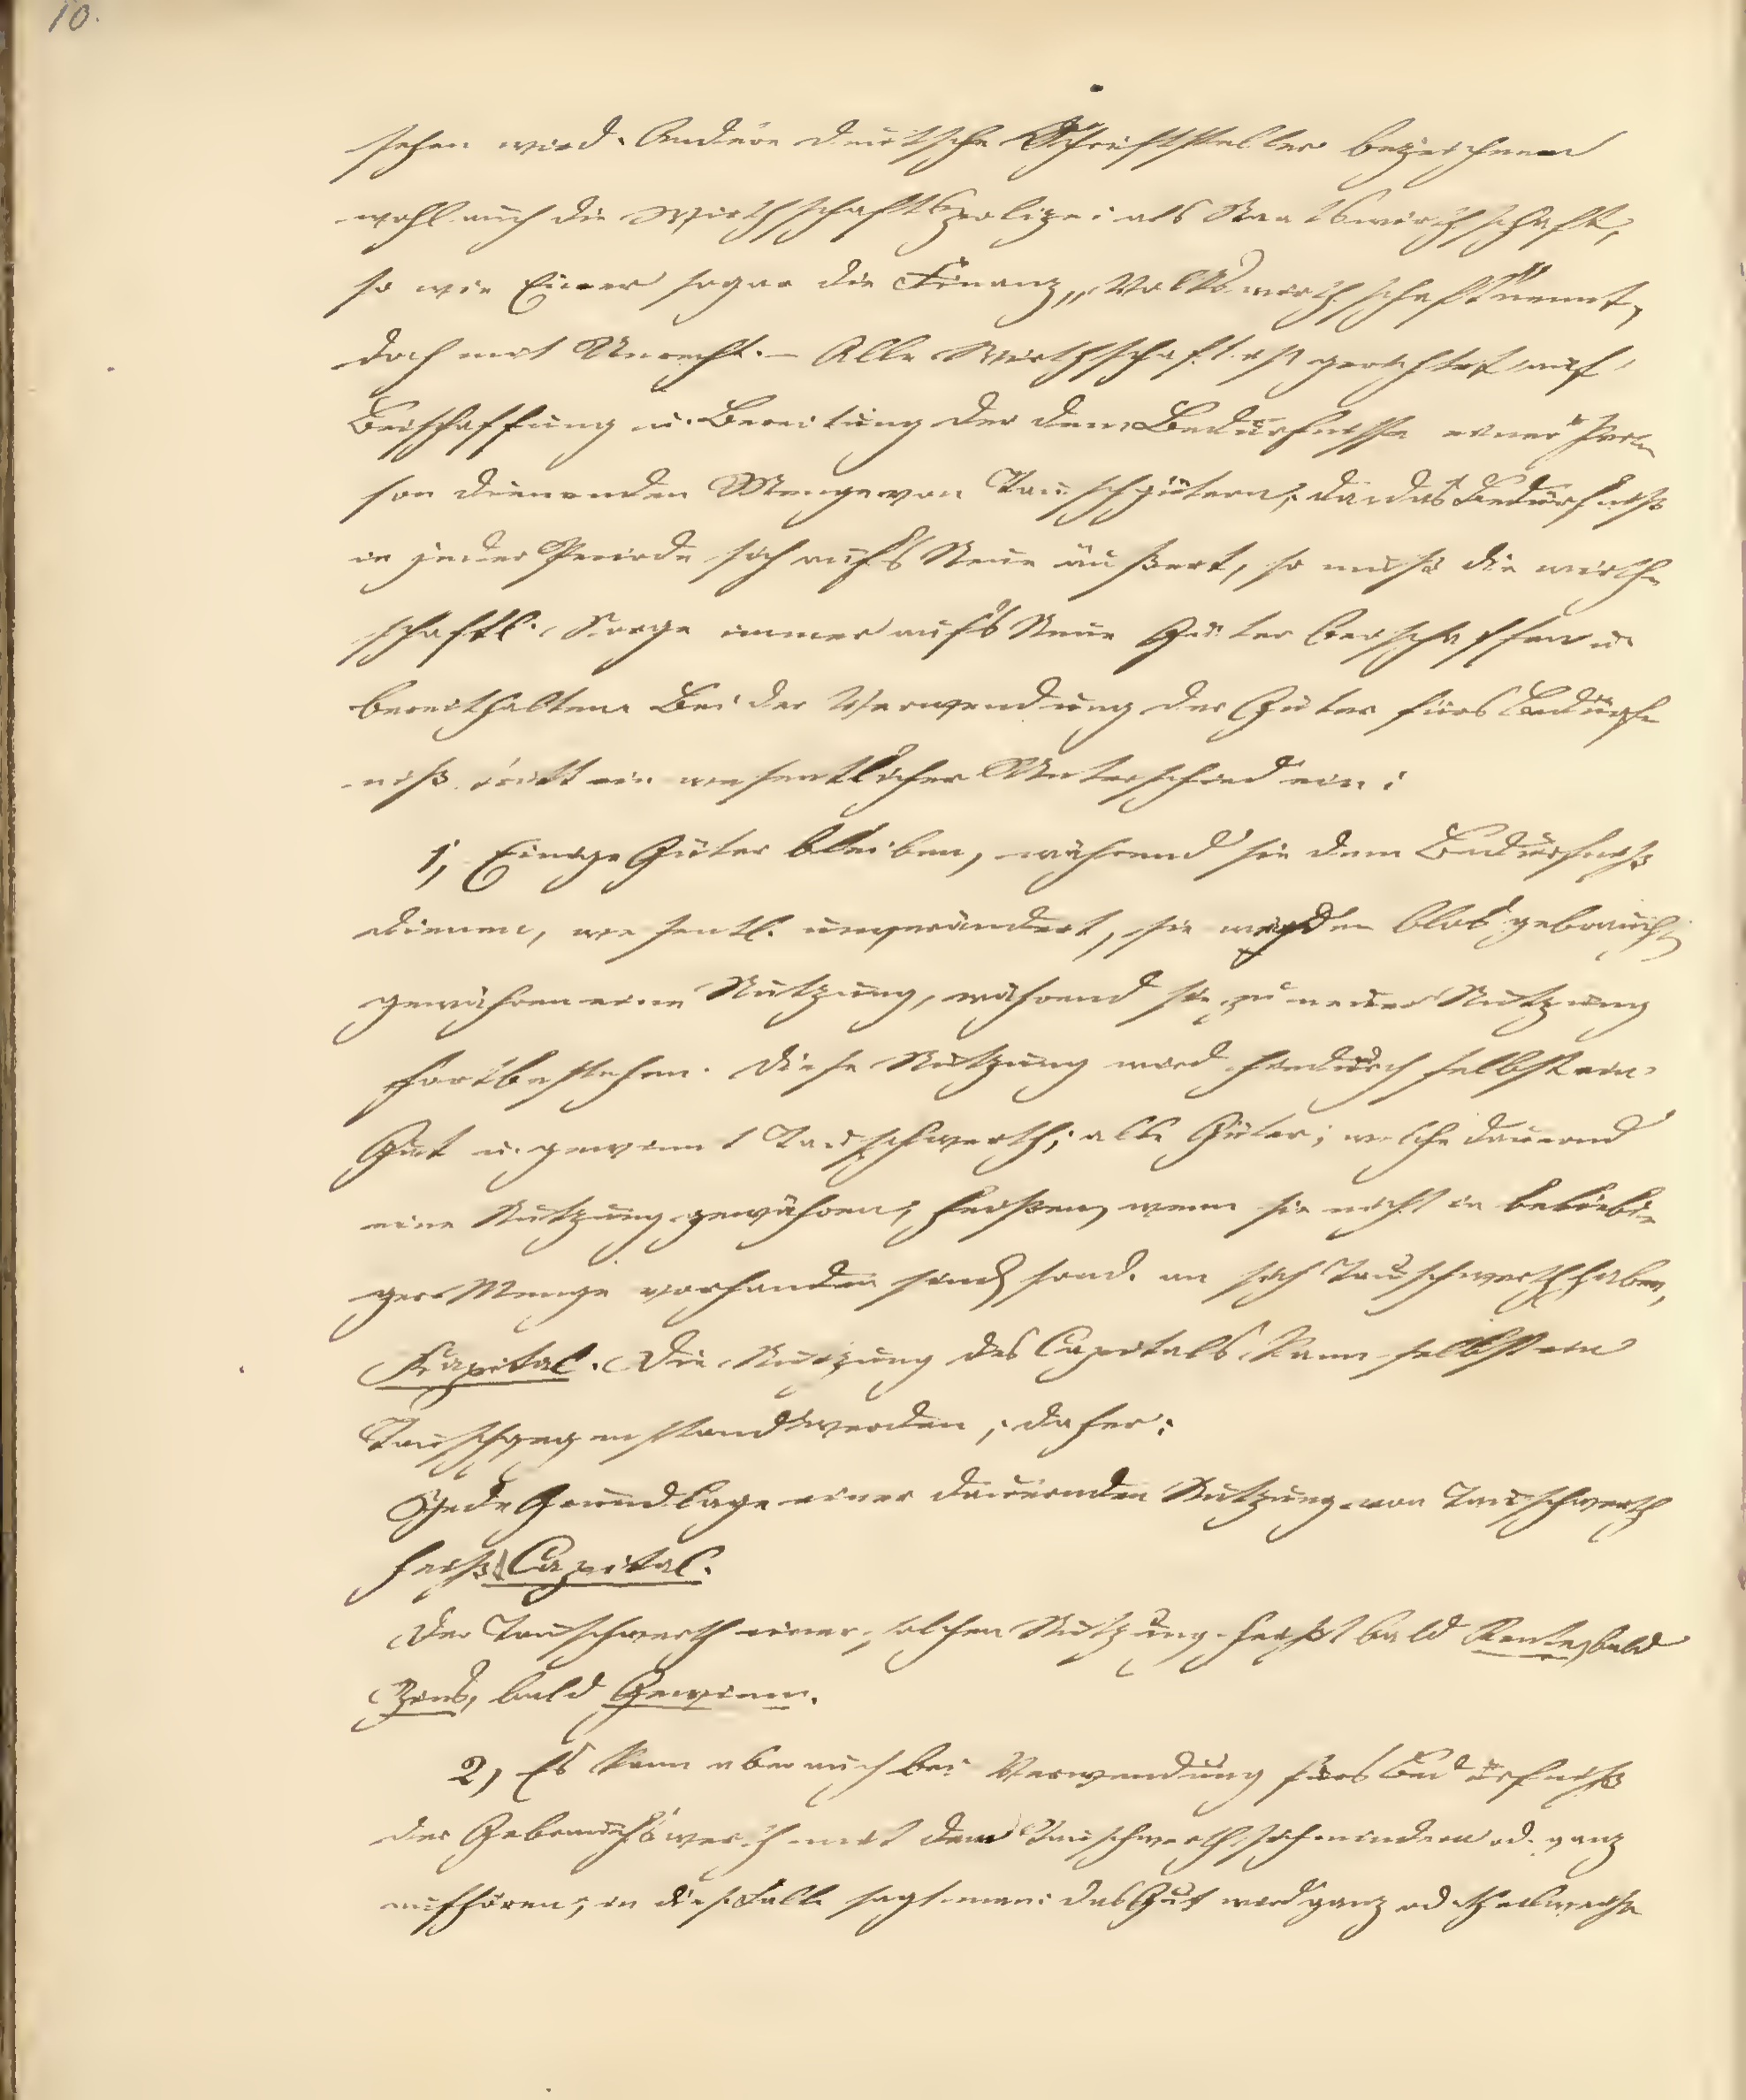 10.
sehen wird. Andere deutsche Schriftsteller bezeichnen
wohl auch die Wirthschaftspolizei als Staatswirthschaft,
so wie Einer sogar die Finanz „Volkswirthschaft" nennt,
doch mit Unrecht. – Alle Wirthschaft ist gerichtet auf
Beischaffung u. Bereitung der dem Bedürfnisse einer Per-
son dienenden Menge von Tauschgütern; da das Bedürfniß
in jeder Periode sich aufs Neue äußert, so muß die wirth-
schaftl. Sorge immer aufs Neue Güter beischaffen u.
bereithalten. Bei der Verwendung der Güter fürs Bedürf-
niß tritt ein wesentlicher Unterschied ein:
1, Einige Güter bleiben, während sie dem Bedürfniß
dienen, wesentl. unverändert, sie werden blos gebraucht,
gewähren eine Nutzung, während sie zu neuer Nutzung
fortbestehen. Diese Nutzung wird hiedurch selbst ein
Gut u. gewinnt Tauschwerth; alle Güter, welche dauernd
eine Nutzung gewähren, heißen, wenn sie nicht in beliebi-
ger Menge vorhanden sind, sond. an sich Tauschwerth haben,
Kapital. Die Nutzung des Capitals kann selbst ein
Tauschgegenstand werden; daher:
Jede Grundlage einer dauernden Nutzung von Tauschwerth
heißt Capital.
Der Tauschwerth einer solchen Nutzung heißt bald Rente, bald
Zins, bald Gewinn.
2, Es kann aber auch bei Verwendung fürs Bedürfniß
der Gebrauchswerth mit dem Tauschwerth sich mindern od. ganz
aufhören; in dies. Falle sagt man: das Gut wird ganz od. theilweise